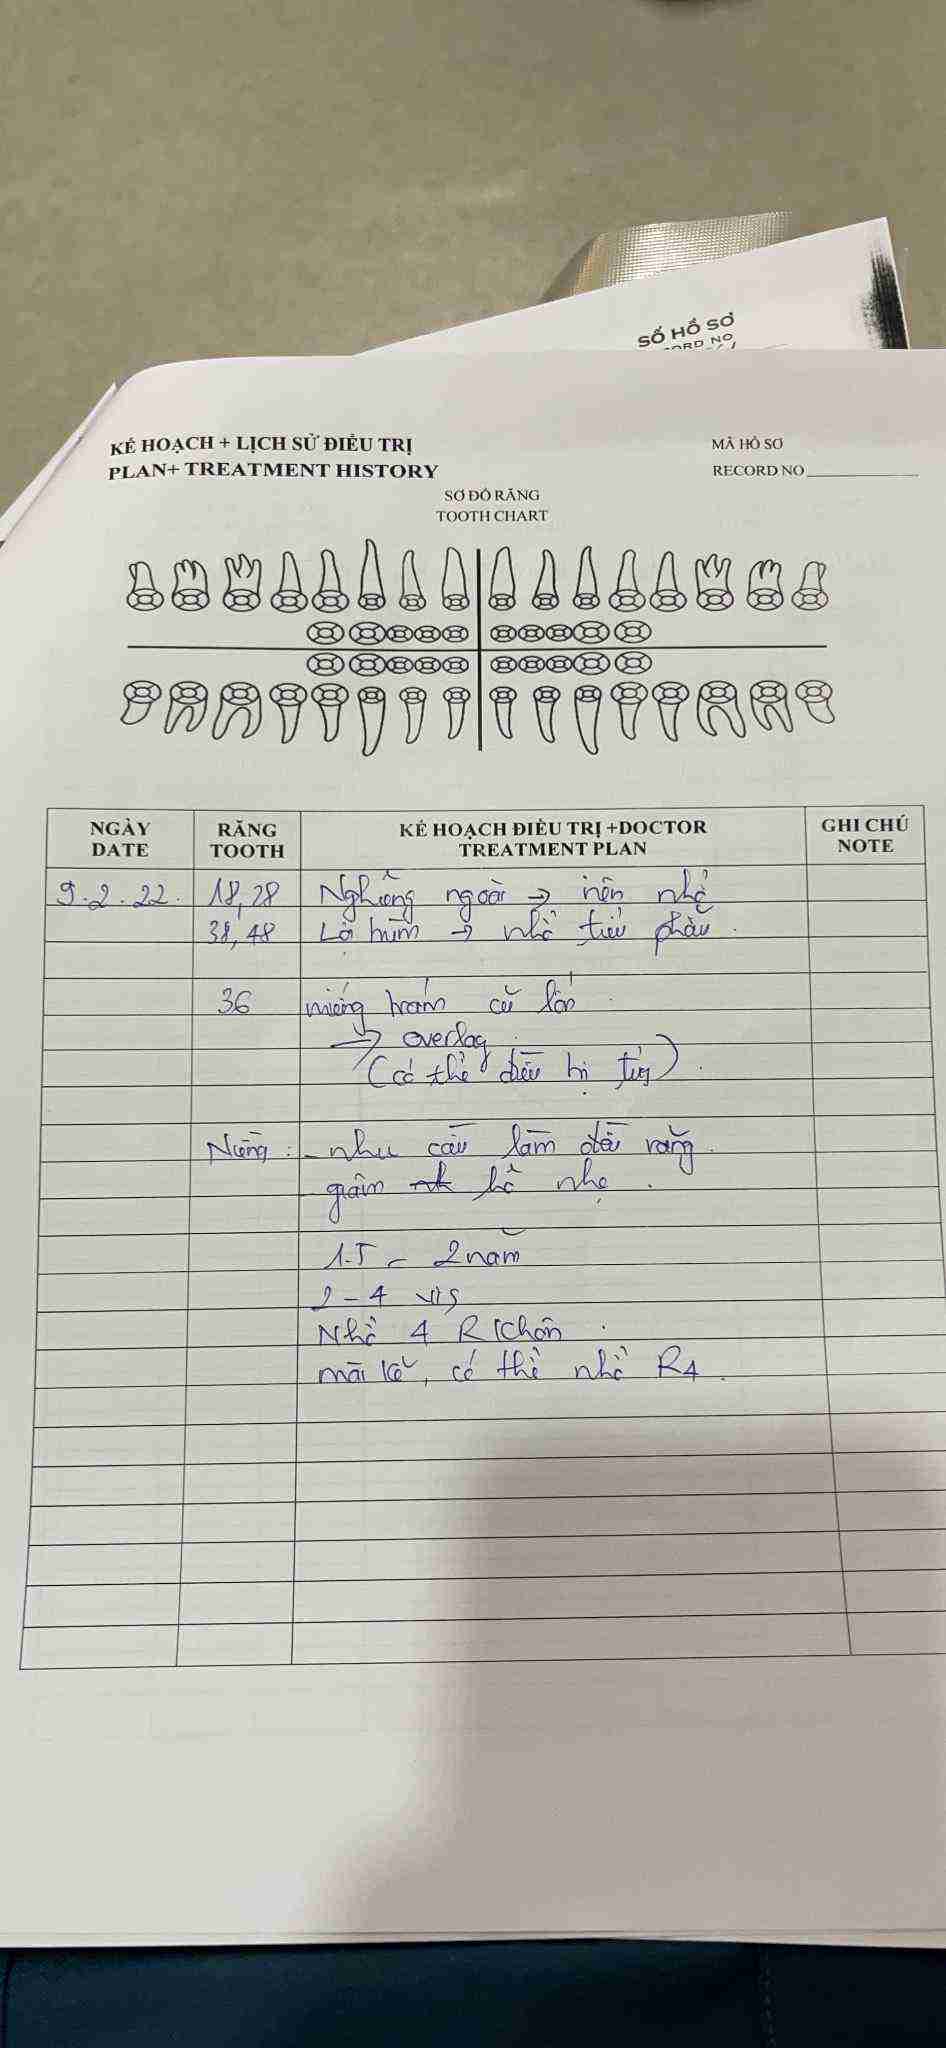 SỐ HỒ SƠ
ORD NO
KẾ HOẠCH + LỊCH SỬ ĐIỀU TRỊ
PLAN+ TREATMENT HISTORY
MÃ HỒ SƠ
RECORD NO
SƠ ĐỒ RĂNG
TOOTH CHART
NGÀY DATE
RĂNG TOOTH
KẾ HOẠCH ĐIỀU TRỊ +DOCTOR TREATMENT PLAN
GHI CHÚ NOTE
9.2.22. 18,28 Nghiêng ngoài → nên nhổ
38,48 → nhổ tiểu phẫu.
36 miếng trám cũ lớn.
→ overlay.
(có thể điều trị tủy).
Niềng: - nhu cầu làm đều răng.
giảm hô nhẹ.
1.5 - 2 năm
2-4 vis
Nhổ 4 R khôn.
mài kẽ, có thể nhổ R4.